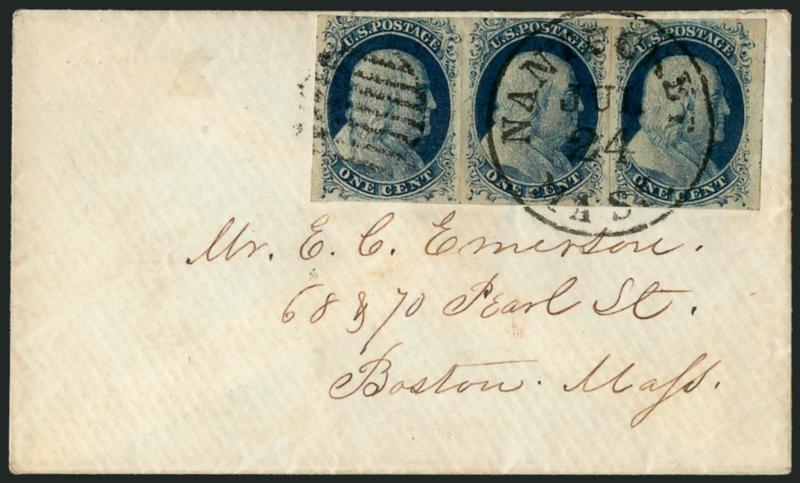 U.S. POSTAGE U.S. POSTAGE U.S. POSTAGE
ONE CENT ONE CENT ONE CENT
NANTUCKET
JUL
24
MAS
Mr. E. C. Emerson.
68 & 70 Pearl St.
Boston. Mass.